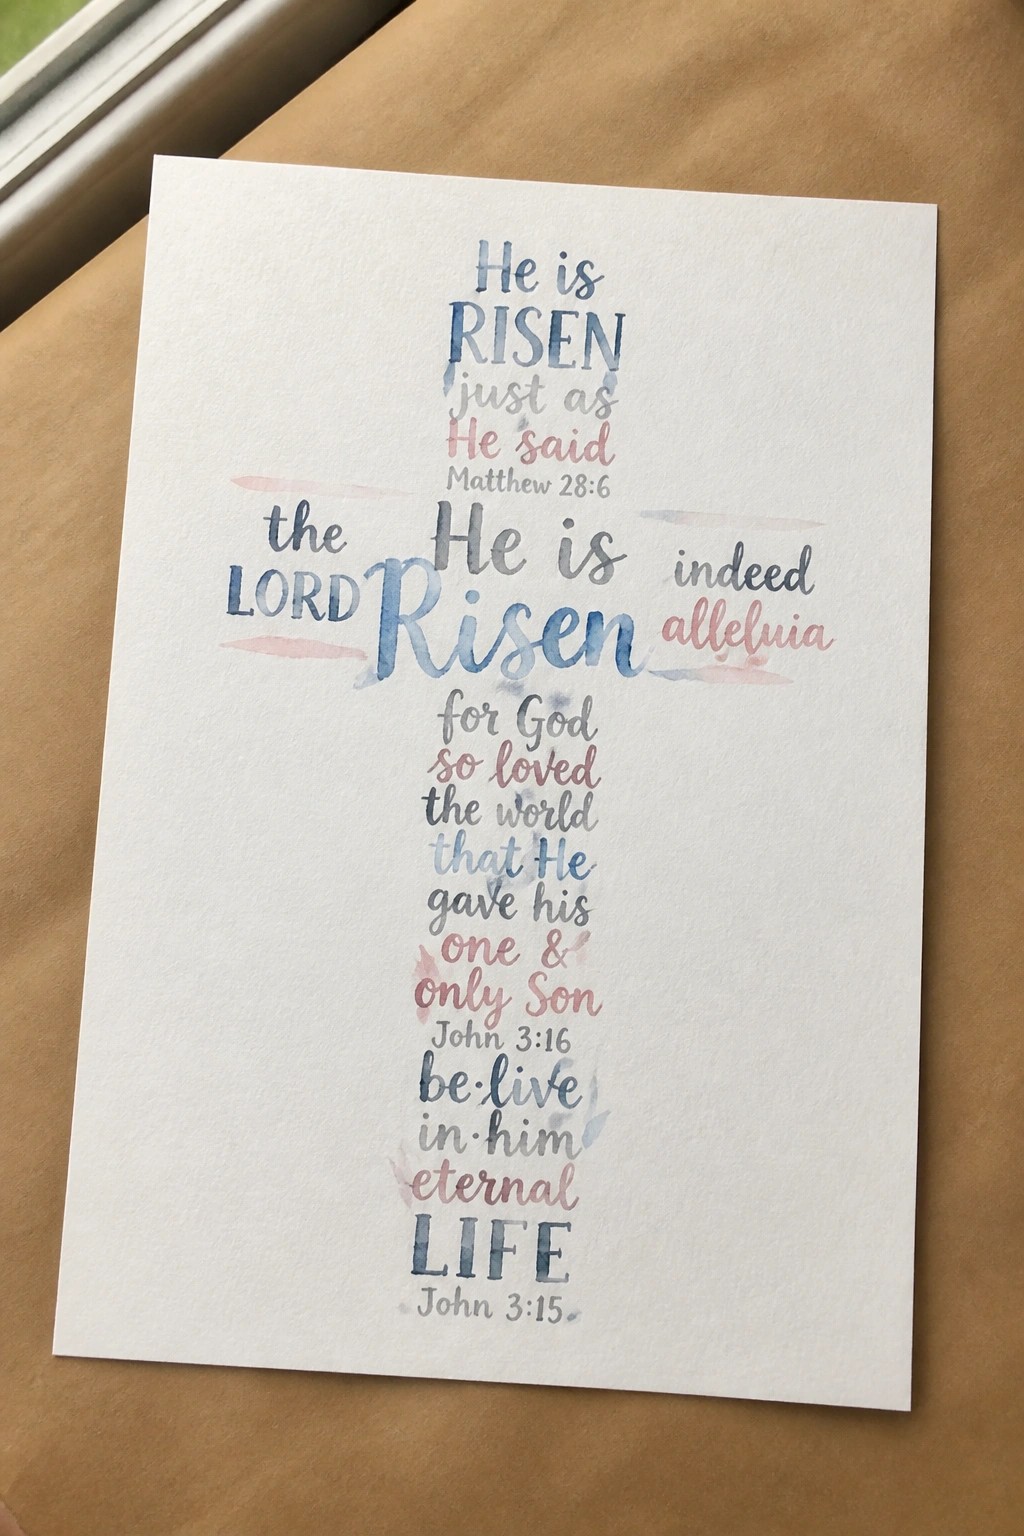 He is
RISEN
just as
He said
Matthew 28:6
the
LORD
He is
Risen
indeed
alleluia
for God
so loved
the world
that He
gave his
one &
only Son
John 3:16
be·live
in·him
eternal
LIFE
John 3:15